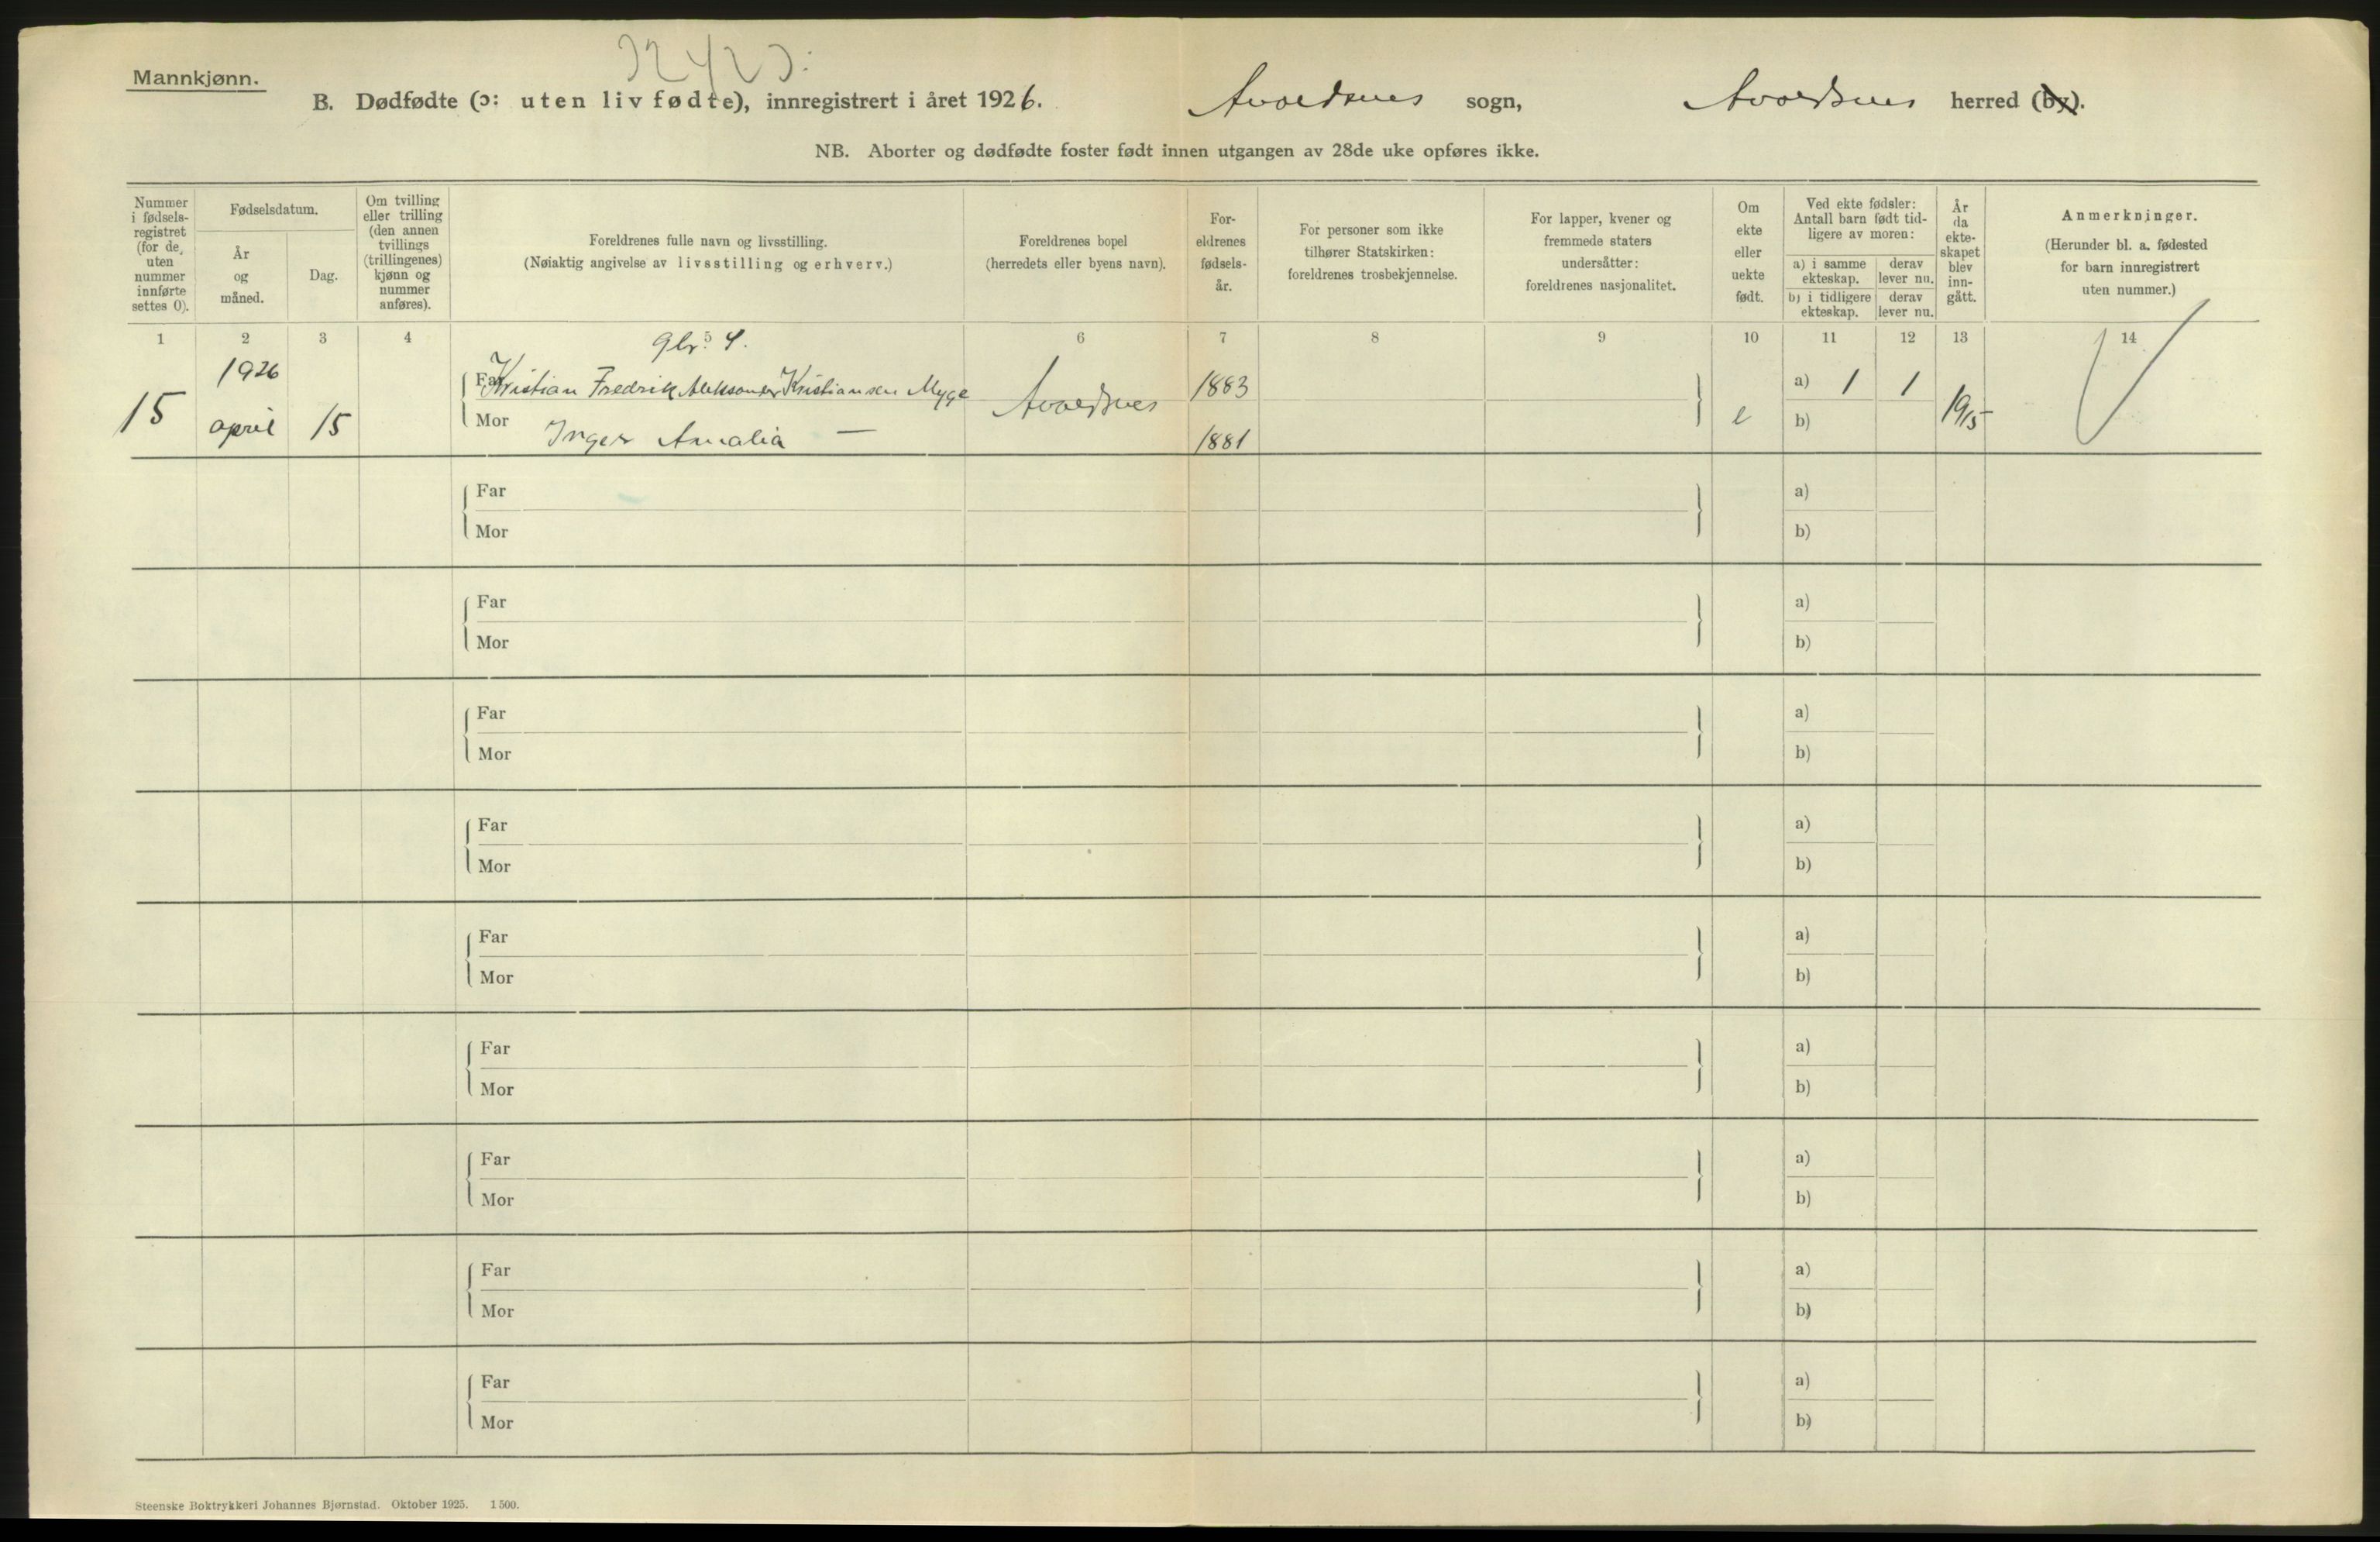 Mannkjønn.
B. Dødfødte (ɔ: uten liv fødte), innregistrert i året 1926. Avaldsnes sogn, Avaldsnes herred (by).
NB. Aborter og dødfødte foster født innen utgangen av 28de uke opføres ikke.
Nummer i fødsels-registret (for de uten nummer innførte settes 0).
Fødselsdatum.
År og måned.
Dag.
Om tvilling eller trilling (den annen tvillings (trillingenes) kjønn og nummer anføres).
Foreldrenes fulle navn og livsstilling.
(Nøiaktig angivelse av livsstilling og erhverv.)
Foreldrenes bopel
(herredets eller byens navn).
For-eldrenes fødsels-år.
For personer som ikke tilhører Statskirken: foreldrenes trosbekjennelse.
For lapper, kvener og fremmede staters undersåtter: foreldrenes nasjonalitet.
Om ekte eller uekte født.
Ved ekte fødsler: Antall barn født tid-ligere av moren:
a) i samme ekteskap.
derav lever nu.
b) i tidligere ekteskap.
derav lever nu.
År da ekte-skapet blev inn-gått.
Anmerkninger.
(Herunder bl. a. fødested for barn innregistrert uten nummer.)
1 2 3 4 5 6 7 8 9 10 11 12 13 14
15 1926 april 15
Far Kristian Fredrik Aleksander Kristiansen Myge Avaldsnes 1883 a) 1 1
Mor Inger Amalia — 1881 e b) 1915
Far a)
Mor b)
Far a)
Mor b)
Far a)
Mor b)
Far a)
Mor b)
Far a)
Mor b)
Far a)
Mor b)
Far a)
Mor b)
Far a)
Mor b)
Far a)
Mor b)
Steenske Boktrykkeri Johannes Bjørnstad. Oktober 1925. 1500.